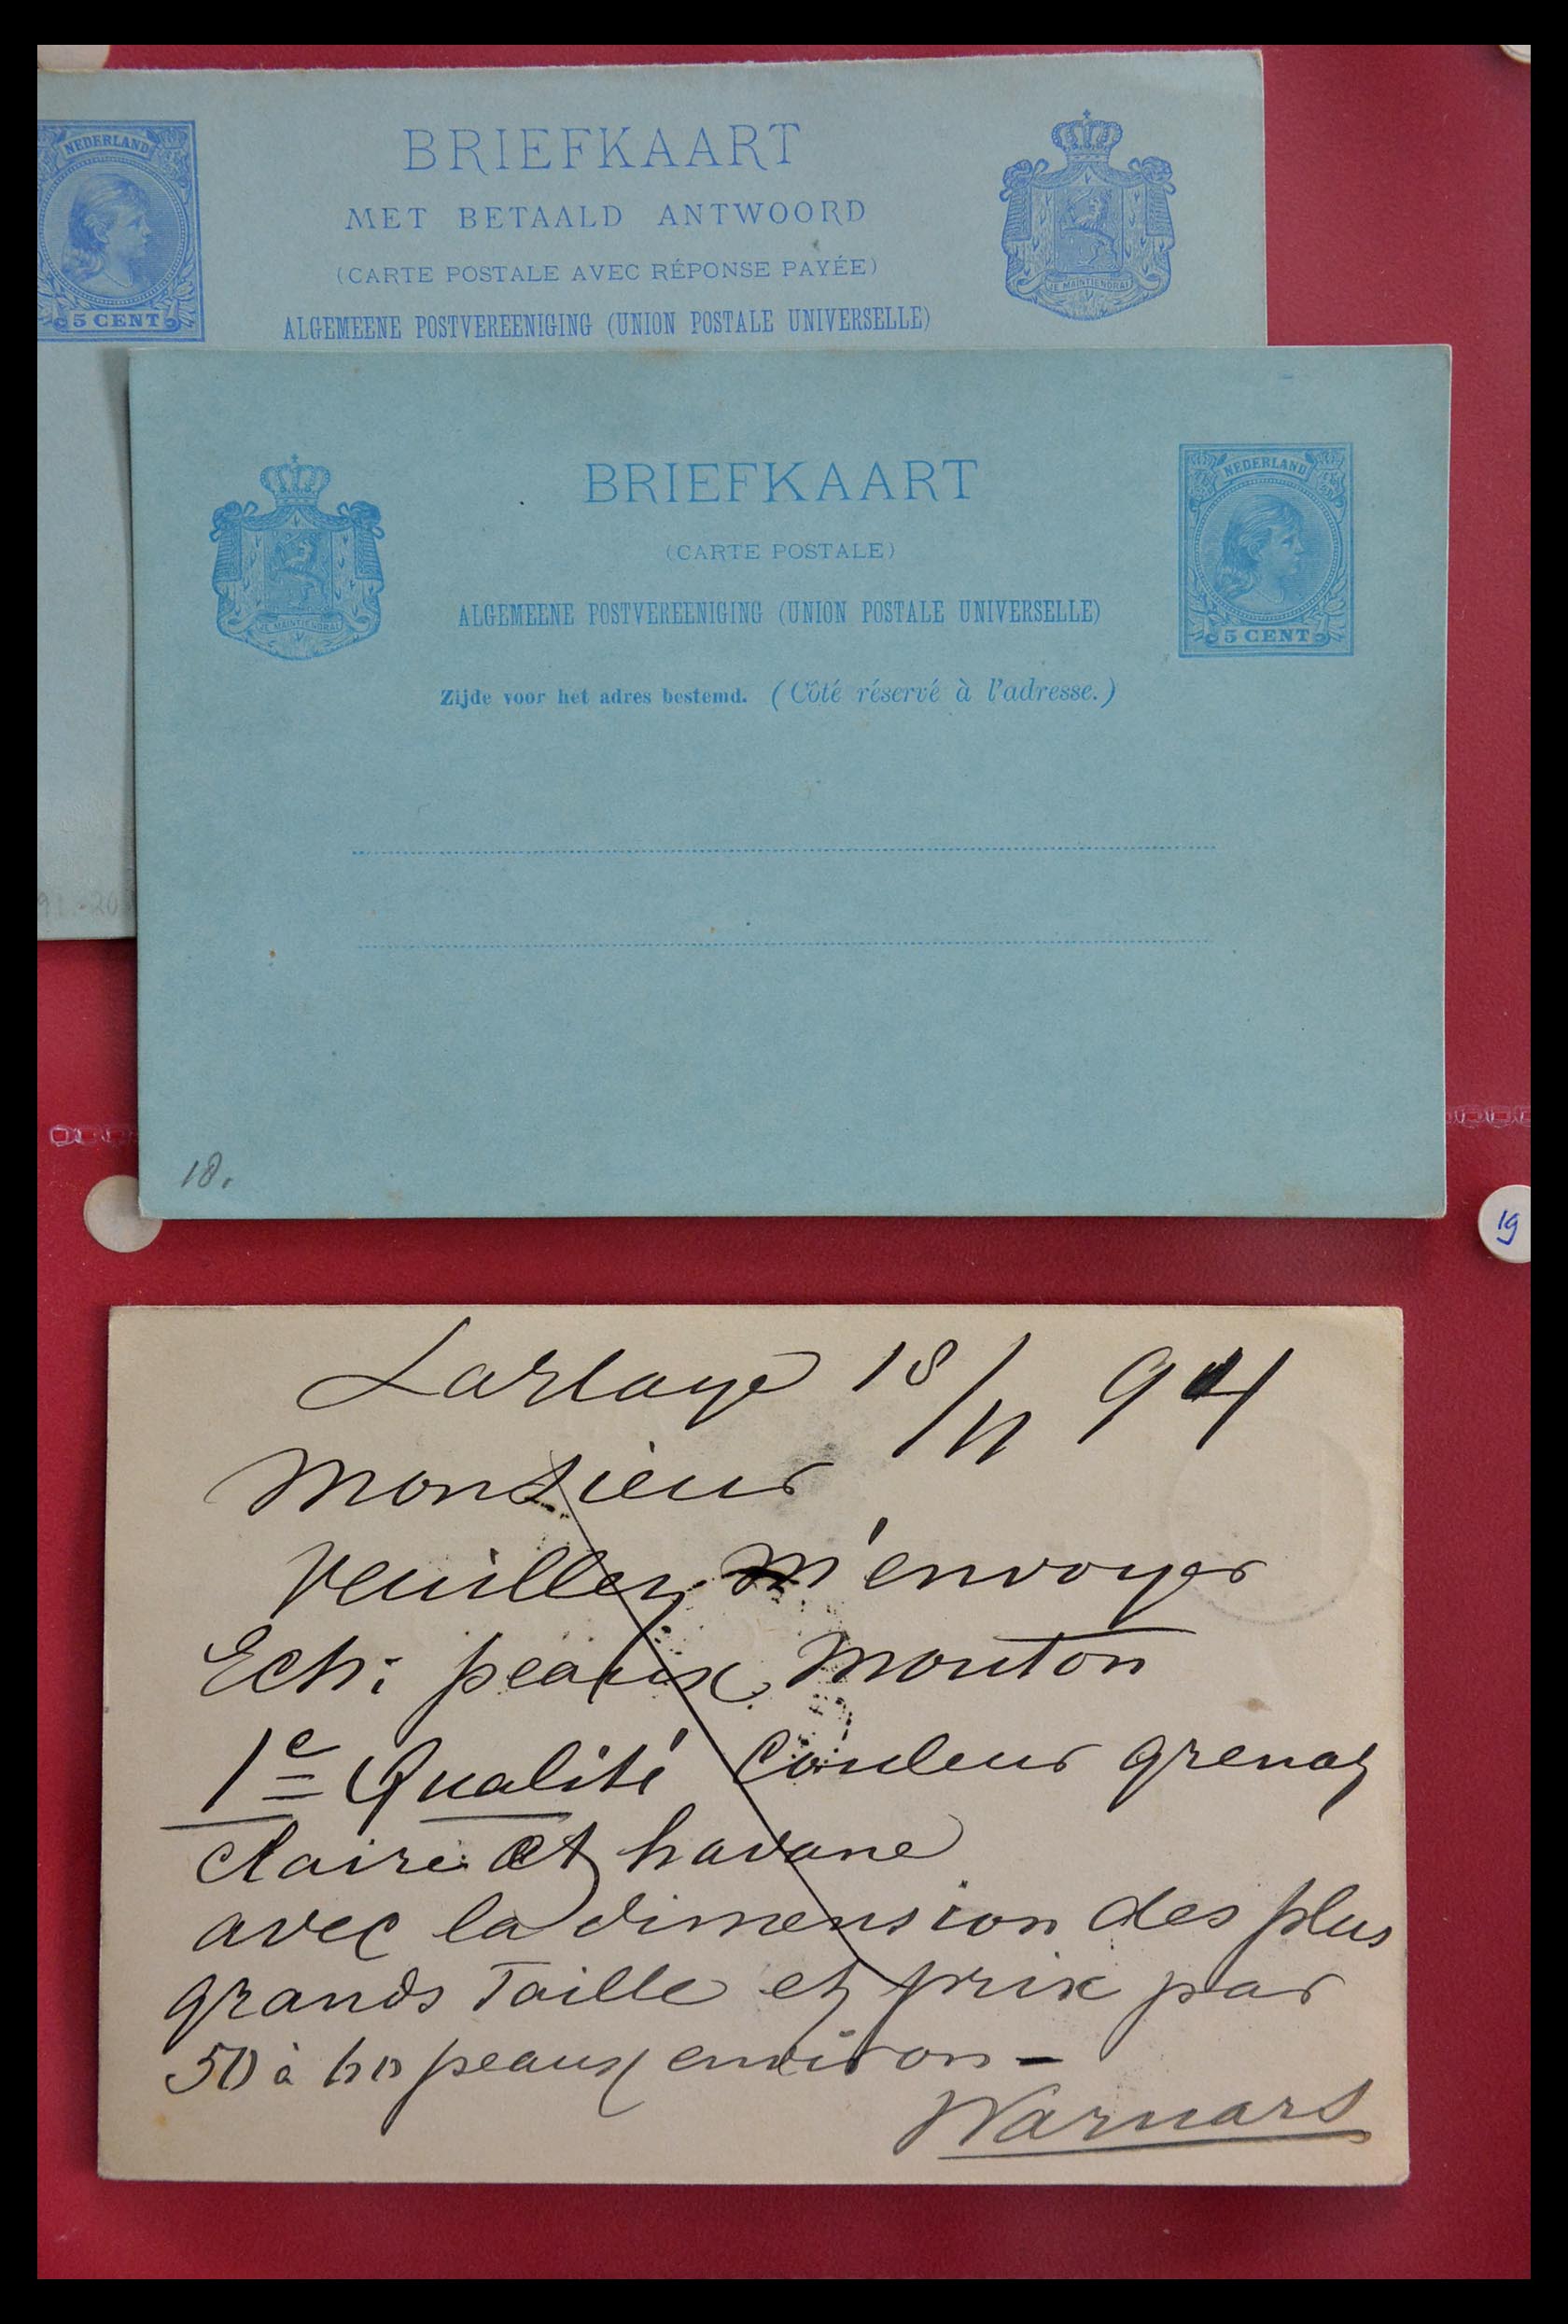 NEDERLAND
5 CENT
BRIEFKAART
MET BETAALD ANTWOORD
(CARTE POSTALE AVEC RÉPONSE PAYÉE)
ALGEMEENE POSTVEREENIGING (UNION POSTALE UNIVERSELLE)
JE MAINTIENDRAI
BRIEFKAART
(CARTE POSTALE)
ALGEMEENE POSTVEREENIGING (UNION POSTALE UNIVERSELLE)
Zijde voor het adres bestemd. (Côté réservé à l'adresse.)
JE MAINTIENDRAI
NEDERLAND
5 CENT
18.
19
18/11 94
Monsieur
Veuillez m'envoyer
Ech: peaux mouton
1e Qualité Couleur grenat
Claire et havane
avec la dimension des plus
grands Taille et prix par
50 à peaux environ -
Warnars